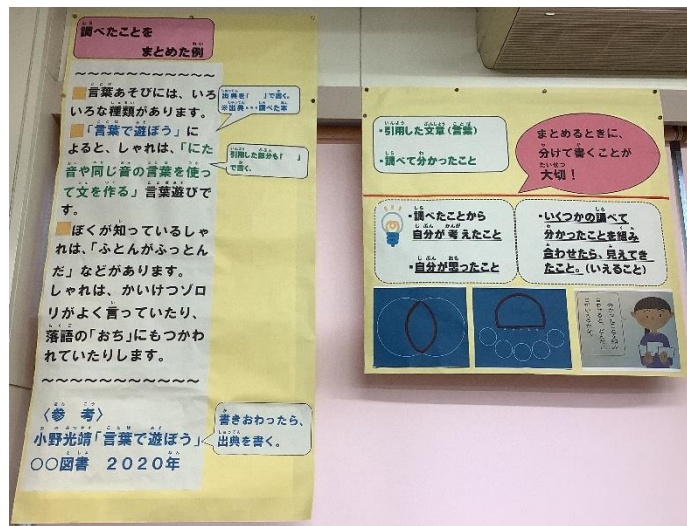 調べたことを
まとめた例
〜〜〜〜〜〜〜〜〜〜〜
言葉あそびには、いろ
いろな種類があります。
「言葉で遊ぼう」に
よると、しゃれは、「にた
音や同じ音の言葉を使っ
て文を作る」言葉遊びで
す。
ぼくが知っているしゃ
れは、「ふとんがふっとん
だ」などがあります。
しゃれは、かいけつゾロ
リがよく言っていたり、
落語の「おち」にもつかわ
れていたりします。
〜〜〜〜〜〜〜〜〜〜〜
〈参考〉
小野光靖「言葉で遊ぼう」
○○図書 2020年
出典を「 」で書く。
※出典・・・調べた本
引用した部分も「 」
で書く。
書きおわったら、
出典を書く。
・引用した文章(言葉)
・調べて分かったこと
まとめるときに、
分けて書くことが
大切!
・調べたことから
自分が考えたこと
・自分が思ったこと
・いくつかの調べて
分かったことを組み
合わせたら、見えてき
たこと。(いえること)